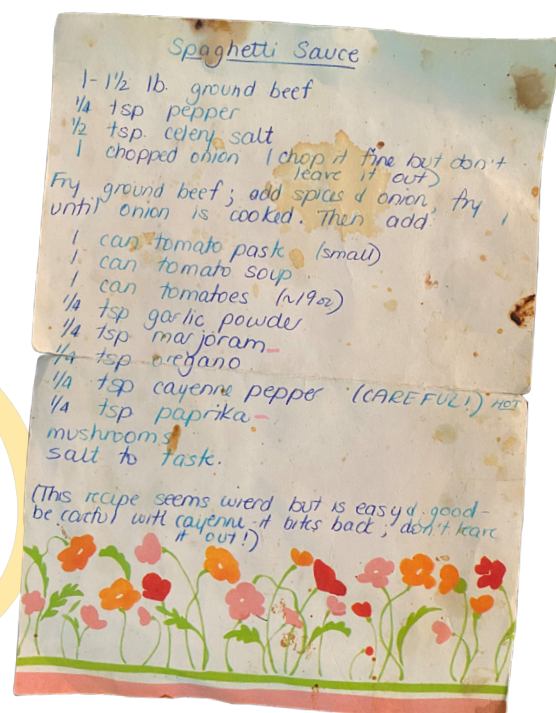 Spaghetti Sauce
1-1½ lb. ground beef
¼ tsp pepper
½ tsp. celery salt
1 chopped onion (chop it fine but don't
leave it out)
Fry ground beef; add spices & onion, fry
until onion is cooked. Then add
1 can tomato paste (small)
1 can tomato soup
1 can tomatoes (~19oz)
¼ tsp garlic powder
¼ tsp marjoram
¼ tsp oregano
¼ tsp cayenne pepper (CAREFUL!) HOT
¼ tsp paprika
mushrooms
salt to taste.
(This recipe seems wierd but is easy & good-
be careful with cayenne-it bites back; don't leave
it out!)